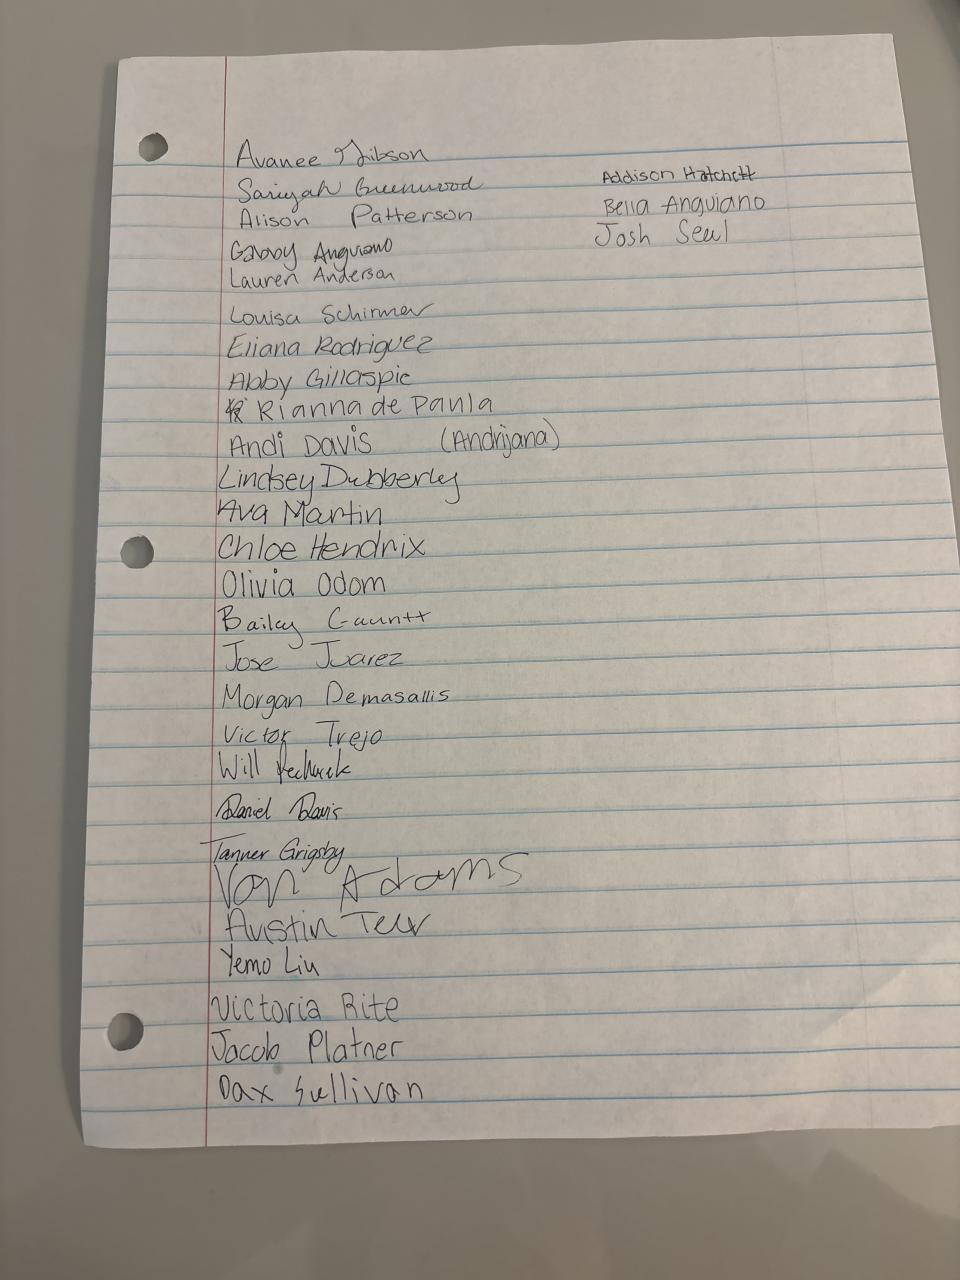 Avanee Gibson
Sariyah Greenwood
Alison Patterson
Gabby Anguiano
Lauren Anderson
Louisa Schirmer
Eliana Rodriguez
Abby Gillaspie
Rianna de Paula
Andi Davis (Andrijana)
Lindsey Dubberley
Ava Martin
Chloe Hendrix
Olivia Odom
Bailey Gauntt
Jose Juarez
Morgan Demasallis
Victor Trejo
Will
Daniel Davis
Tanner Grigsby
Von Adams
Austin
Yemo Liu
Victoria Rite
Jacob Platner
Dax Sullivan
Addison Hatchett
Bella Anguiano
Josh Seul